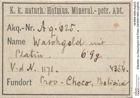 K. k. naturh. Hofmus. Mineral.-petr. Abt.
Akq.-Nr. A.g. 625.
Name Waschgold mit
Platin 69g
V. d. N. 1171.
Fundort Prov. Choco, Bolivia